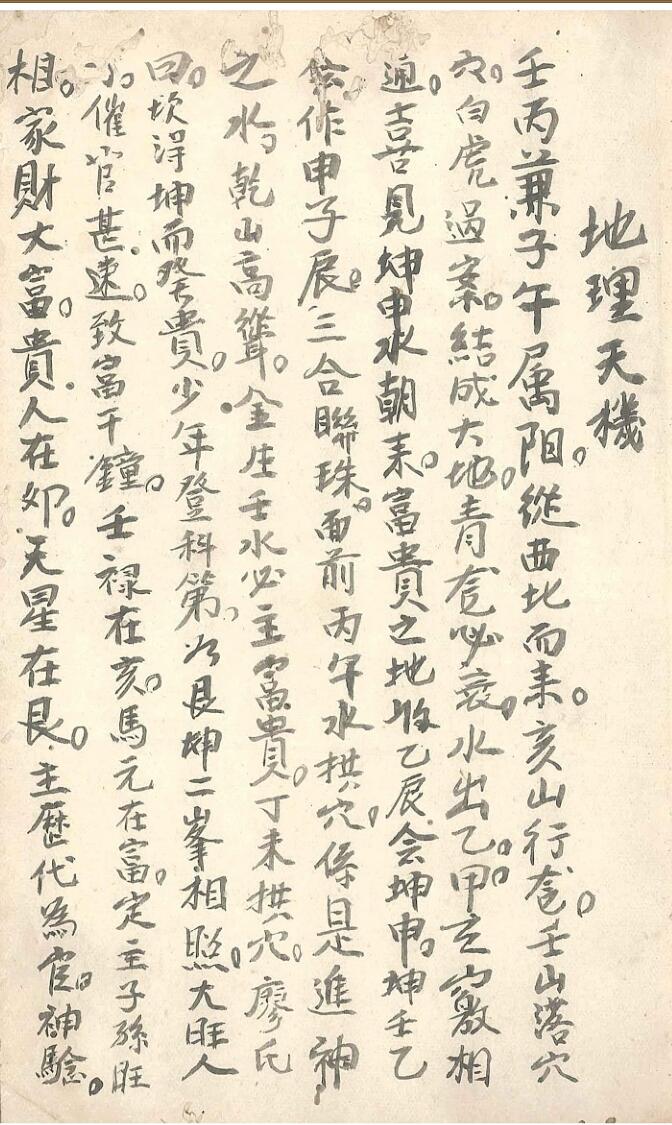 地理天機
壬丙兼子午属阳。從西北而来。亥山行龙。壬山落穴
穴。白虎過案。結成大地。青龙必衰。水出乙。甲玄竅相
通。喜見坤申水朝来。富貴之地收乙辰会坤申。坤壬乙
会作申子辰。三合聯珠。面前丙午水拱穴。係是進神
之水。乾山高聳。金生壬水必主富貴。丁未拱穴。廖氏
曰。坎淂坤而癸貴。少年登科第。艮坤二峯相照。大旺人
小。催官甚速。致富千鐘。壬禄在亥。馬元在富。定主子孫旺
相。家財大富。貴人在卯。天星在艮。主歷代為官。神驗。